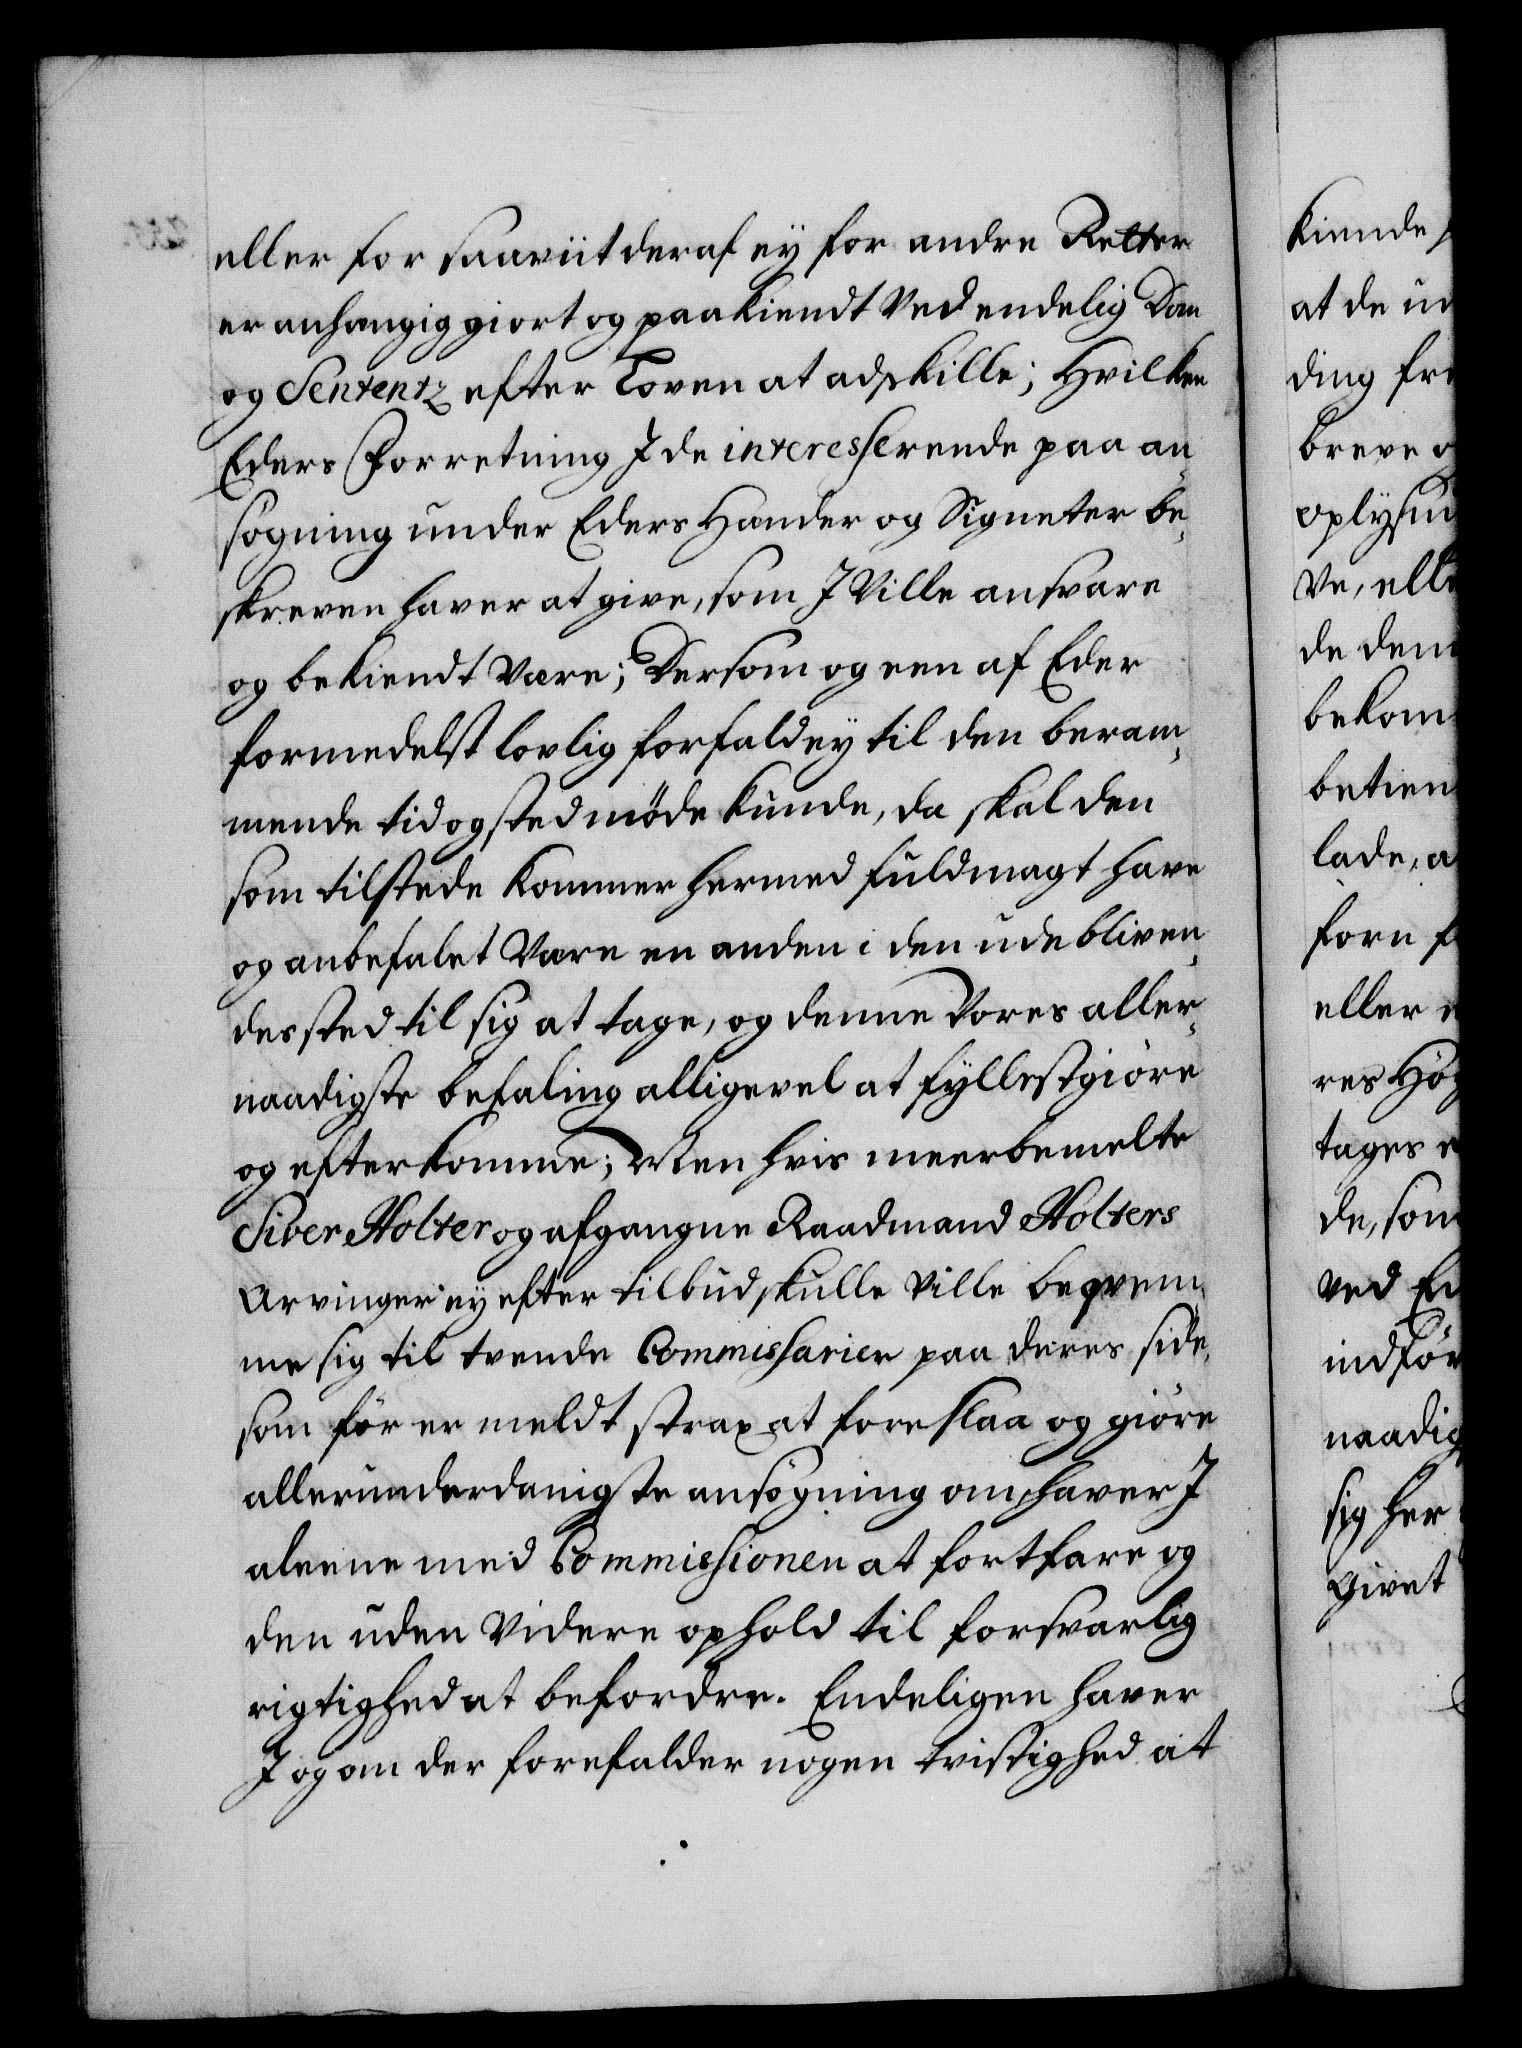 eller for saaviit deraf ey for andre Retter
er anhængig giort og paakiendt ved endelig Dom
og Sententz efter Loven at adskille; Hvilken
Eders Forretning I de interesserende paa an-
søgning under Eders Hænder og Signeter be-
skreven haver at give, som I Ville ansvare
og bekiendt Være; Dersom og een af Eder
formedelst lovlig forfald ey til den beram-
mende tid og sted møde kunde, da skal den
som tilstede kommer hermed fuldmagt have
og anbefalet Være en anden i den udebliven-
des sted til sig at tage, og denne Vores aller-
naadigste befaling alligevel at fyllestgiøre
og efterkomme; Men hvis meerbemelte
Siver Holter og afgangne Raadmand Holters
Arvinger ey efter tilbud skulle Ville beqvem-
me sig til tvende Commissarier paa deres side,
som før er meldt strax at foreslaa og giøre
allerunderdanigste ansøgning om, haver I
aleene med Commissionen at fortfare og
den uden Videre ophold til forsvarlig
rigtighed at befordre. Endeligen haver
I og om der forefalder nogen tvistighed at
kiende
at de ud
ding fre
breve o
oplysni
Ve, elle
de dem
bekom
betien
lade, a
forn f
eller
res Høy
tages
de, som
ved En
indfør
naadig
sig her
Givet